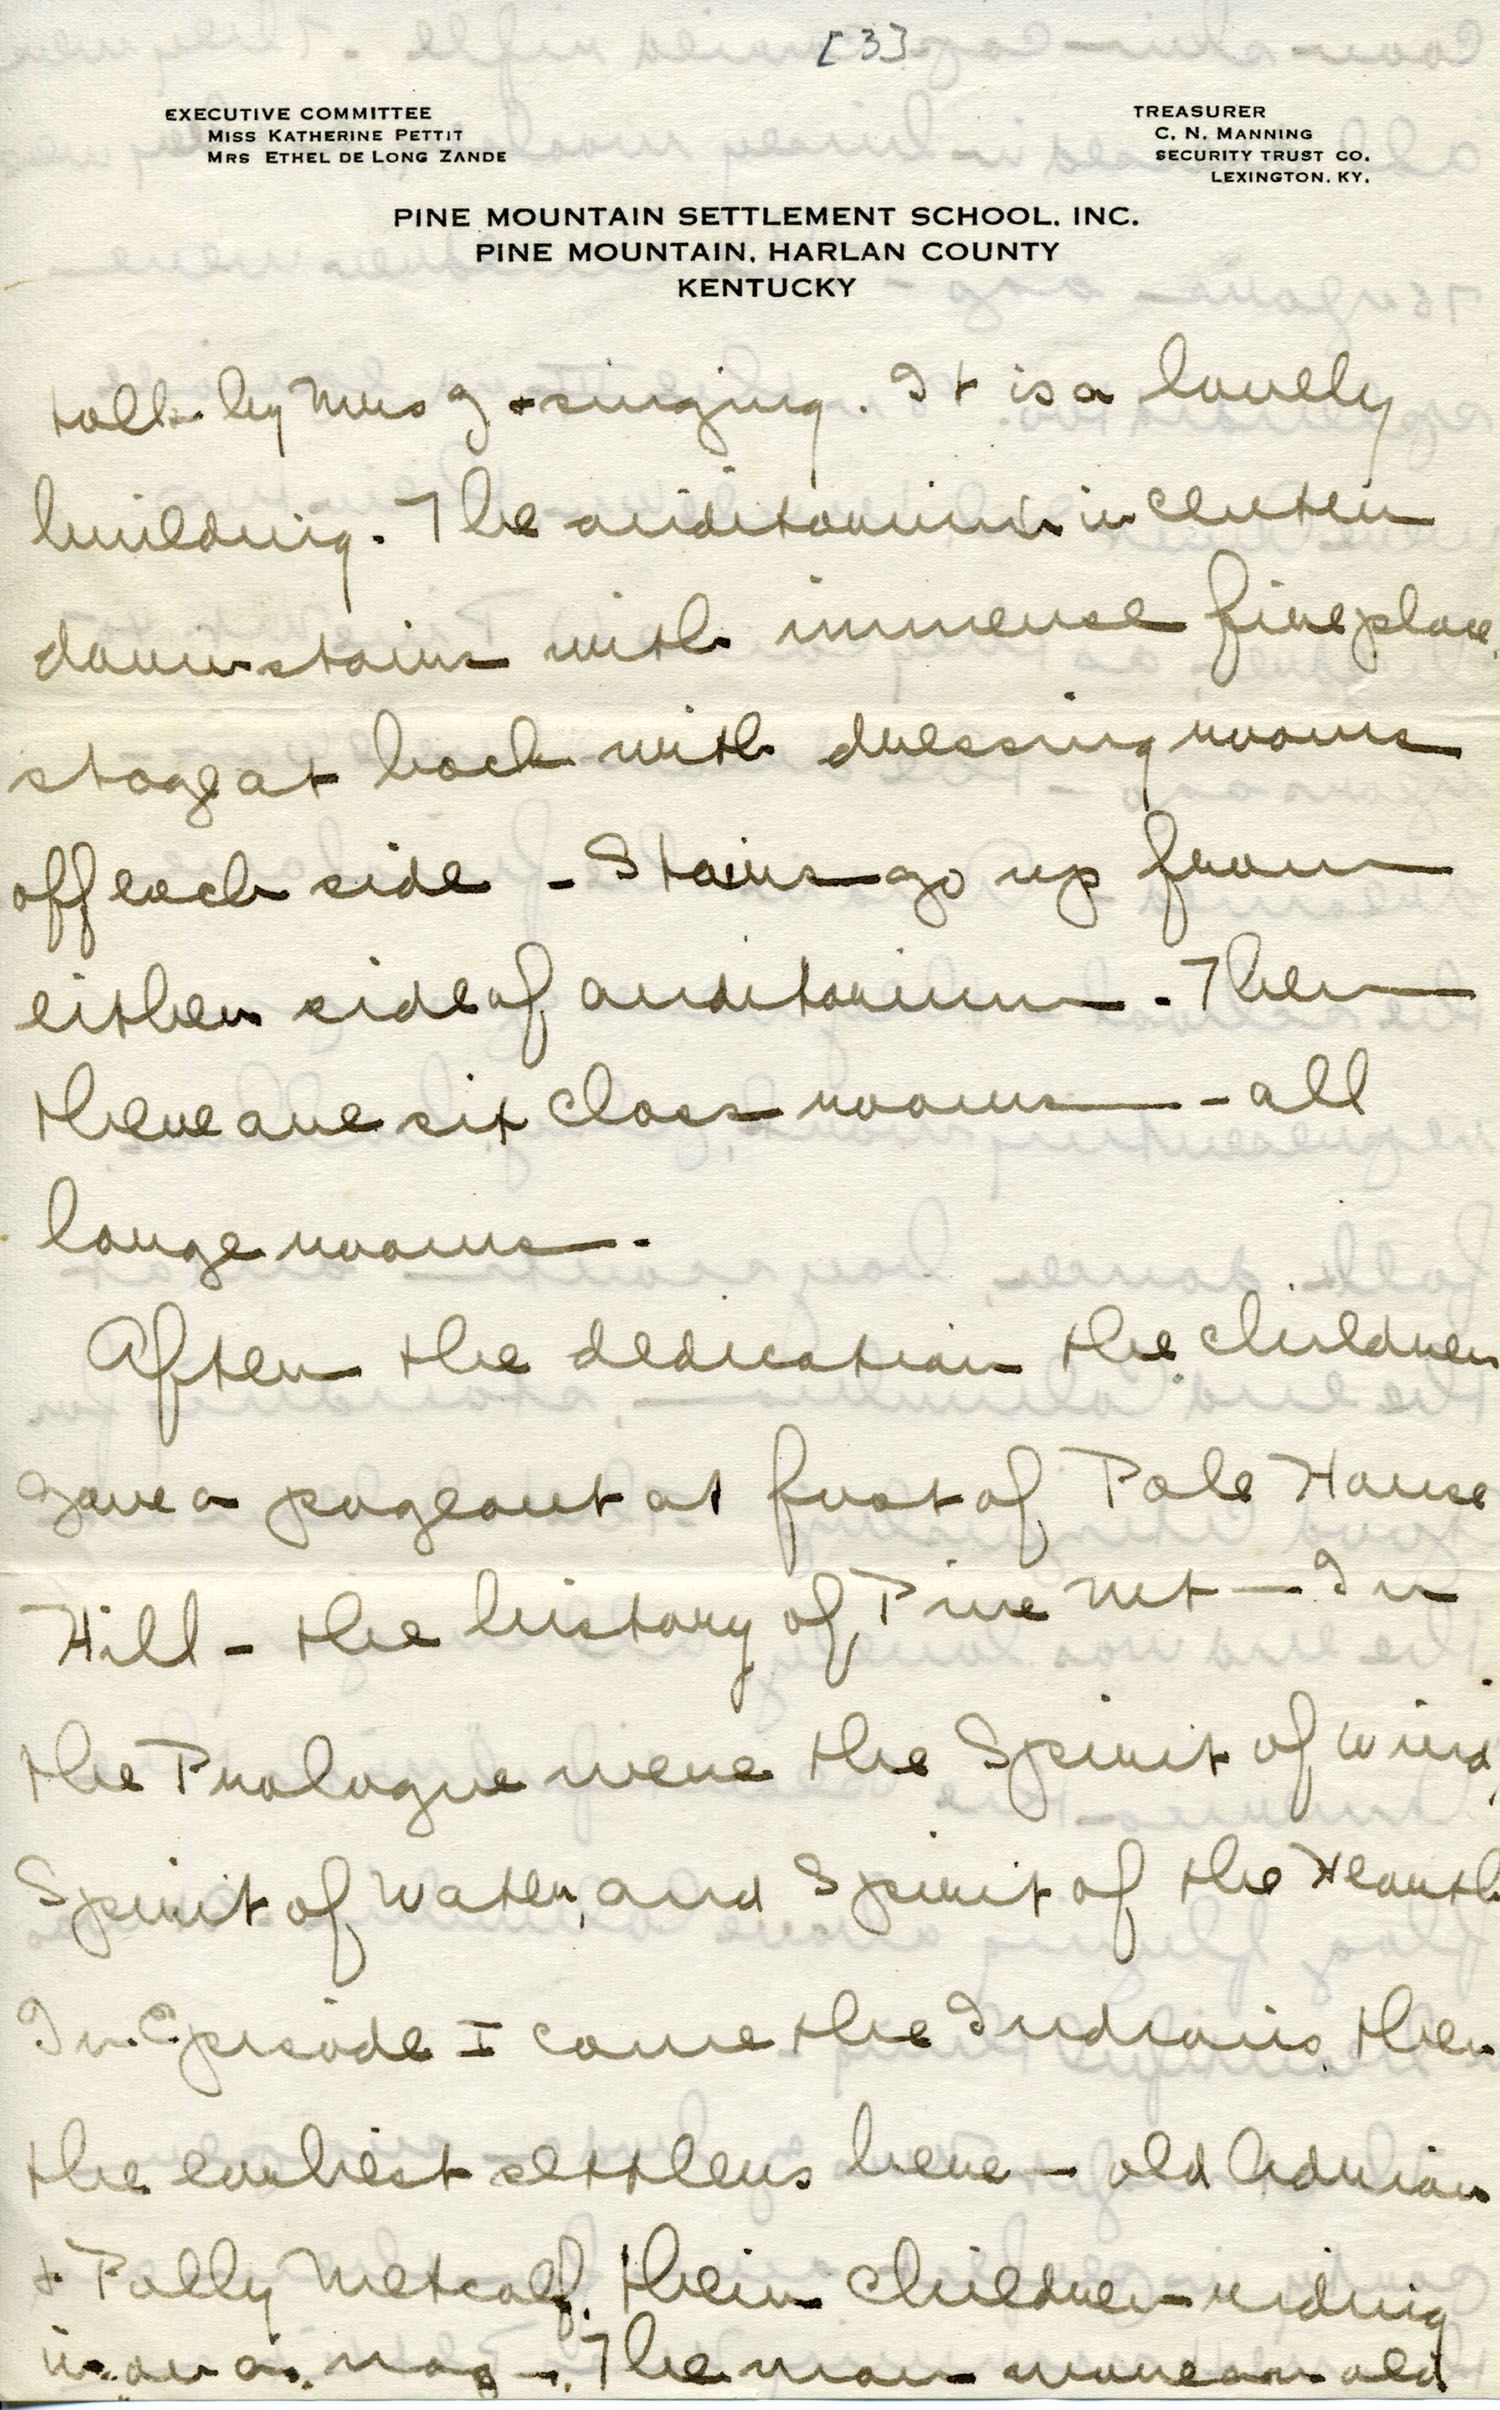 [3]
EXECUTIVE COMMITTEE
MISS KATHERINE PETTIT
MRS ETHEL DE LONG ZANDE
TREASURER
C. N. MANNING
SECURITY TRUST CO.
LEXINGTON. KY.
PINE MOUNTAIN SETTLEMENT SCHOOL. INC.
PINE MOUNTAIN, HARLAN COUNTY
KENTUCKY
talk by Mrs Z + singing. It is a lovely
building. The auditorium in center
downstairs with immense fireplace,
stage at back with dressing rooms
off each side - Stairs go up from
either side of auditorium - Then
there are six class rooms - all
large rooms.
After the dedication the children
gave a pageant at foot of Pole House
Hill - the history of Pine Mt - In
the Prologue were the Spirit of Wind,
Spirit of Water, and Spirit of the Hearth
In Episode I came the Indians, then
the earliest settlers here - old Adrian
+ Polly Metcalf, their children riding
in on a nag -. The man wore an old